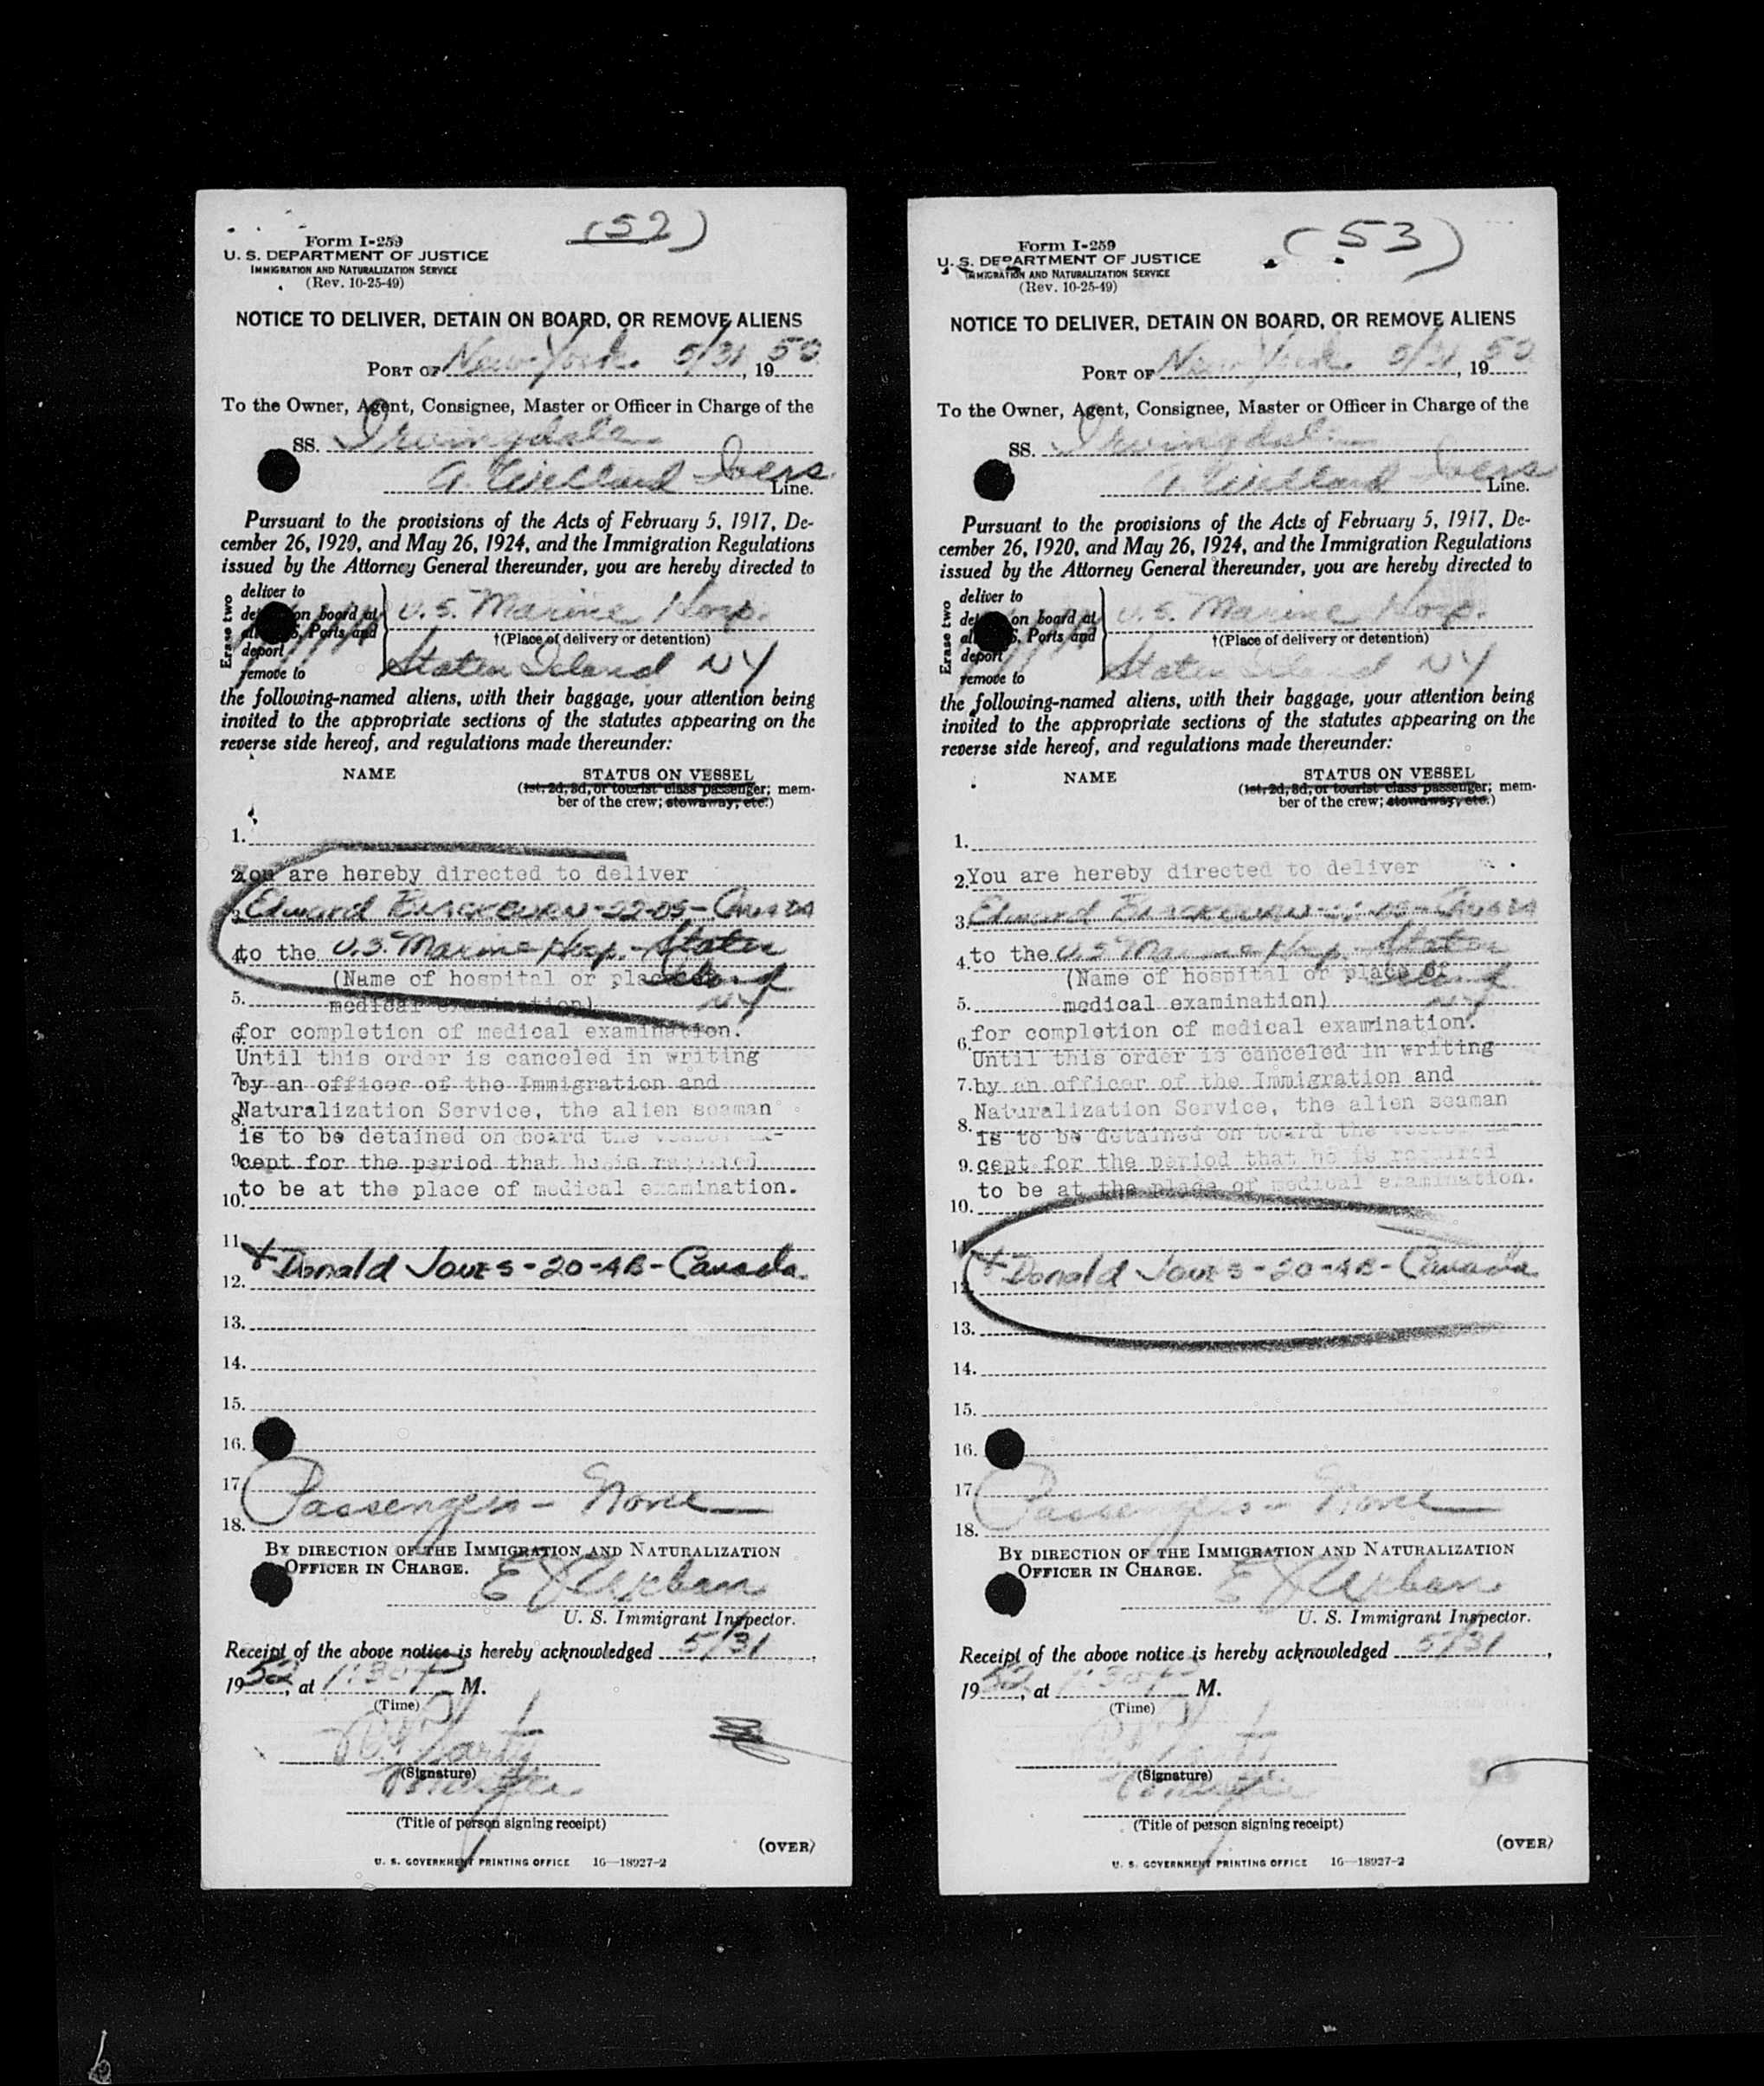 (52)
Form I-259
U. S. DEPARTMENT OF JUSTICE
IMMIGRATION AND NATURALIZATION SERVICE
(Rev. 10-25-49)
NOTICE TO DELIVER, DETAIN ON BOARD, OR REMOVE ALIENS
PORT OF New York 5/31, 1950
To the Owner, Agent, Consignee, Master or Officer in Charge of the
SS. Irvingdale
A. Willard Ivers Line.
Pursuant to the provisions of the Acts of February 5, 1917, De-
cember 26, 1920, and May 26, 1924, and the Immigration Regulations
issued by the Attorney General thereunder, you are hereby directed to
Erase two
deliver to
on board at U.S. Marine Hosp.
Ports and †(Place of delivery or detention)
deport Staten Island NY
remove to
the following-named aliens, with their baggage, your attention being
invited to the appropriate sections of the statutes appearing on the
reverse side hereof, and regulations made thereunder:
NAME STATUS ON VESSEL
(1st, 2d, 3d, or tourist class passenger; mem-
ber of the crew; stowaway, etc.)
1.
2. You are hereby directed to deliver
3. Edward Blackburn-22-05-Canada
4. to the U.S. Marine Hosp. - Staten
(Name of hospital or place Island
5. medical examination) NY
6. for completion of medical examination.
Until this order is canceled in writing
7. by an officer of the Immigration and
8. Naturalization Service, the alien seaman
is to be detained on board the vessel ex-
9. cept for the period that he is required
10. to be at the place of medical examination.
11.
12. + Donald Jones-20-4B-Canada
13.
14.
15.
16.
17. Passengers - None
18.
BY DIRECTION OF THE IMMIGRATION AND NATURALIZATION
OFFICER IN CHARGE.
E J Urban
U. S. Immigrant Inspector.
Receipt of the above notice is hereby acknowledged 5/31,
1950, at 1:30 P M.
(Time)
(Signature)
(Title of person signing receipt)
(OVER)
U. S. GOVERNMENT PRINTING OFFICE 16—18927-2
(53)
Form I-259
U. S. DEPARTMENT OF JUSTICE
IMMIGRATION AND NATURALIZATION SERVICE
(Rev. 10-25-49)
NOTICE TO DELIVER, DETAIN ON BOARD, OR REMOVE ALIENS
PORT OF New York 5/31, 1950
To the Owner, Agent, Consignee, Master or Officer in Charge of the
SS. Irvingdale
A. Willard Ivers Line.
Pursuant to the provisions of the Acts of February 5, 1917, De-
cember 26, 1920, and May 26, 1924, and the Immigration Regulations
issued by the Attorney General thereunder, you are hereby directed to
Erase two
deliver to
on board at U.S. Marine Hosp.
Ports and †(Place of delivery or detention)
deport Staten Island NY
remove to
the following-named aliens, with their baggage, your attention being
invited to the appropriate sections of the statutes appearing on the
reverse side hereof, and regulations made thereunder:
NAME STATUS ON VESSEL
(1st, 2d, 3d, or tourist class passenger; mem-
ber of the crew; stowaway, etc.)
1.
2. You are hereby directed to deliver
3. Edward Blackburn-22-05-Canada
4. to the U S Marine Hosp. Staten
(Name of hospital or place of Island
5. medical examination) NY
6. for completion of medical examination.
Until this order is canceled in writing
7. by an officer of the Immigration and
Naturalization Service, the alien seaman
8. is to be detained on board the vessel ex-
9. cept for the period that he is required
to be at the place of medical examination.
10.
11.
12. + Donald Jones-20-4B-Canada
13.
14.
15.
16.
17. Passengers - None
18.
BY DIRECTION OF THE IMMIGRATION AND NATURALIZATION
OFFICER IN CHARGE.
E J Urban
U. S. Immigrant Inspector.
Receipt of the above notice is hereby acknowledged 5/31,
1950, at 1:30 P M.
(Time)
(Signature)
(Title of person signing receipt)
(OVER)
U. S. GOVERNMENT PRINTING OFFICE 16—18927-2